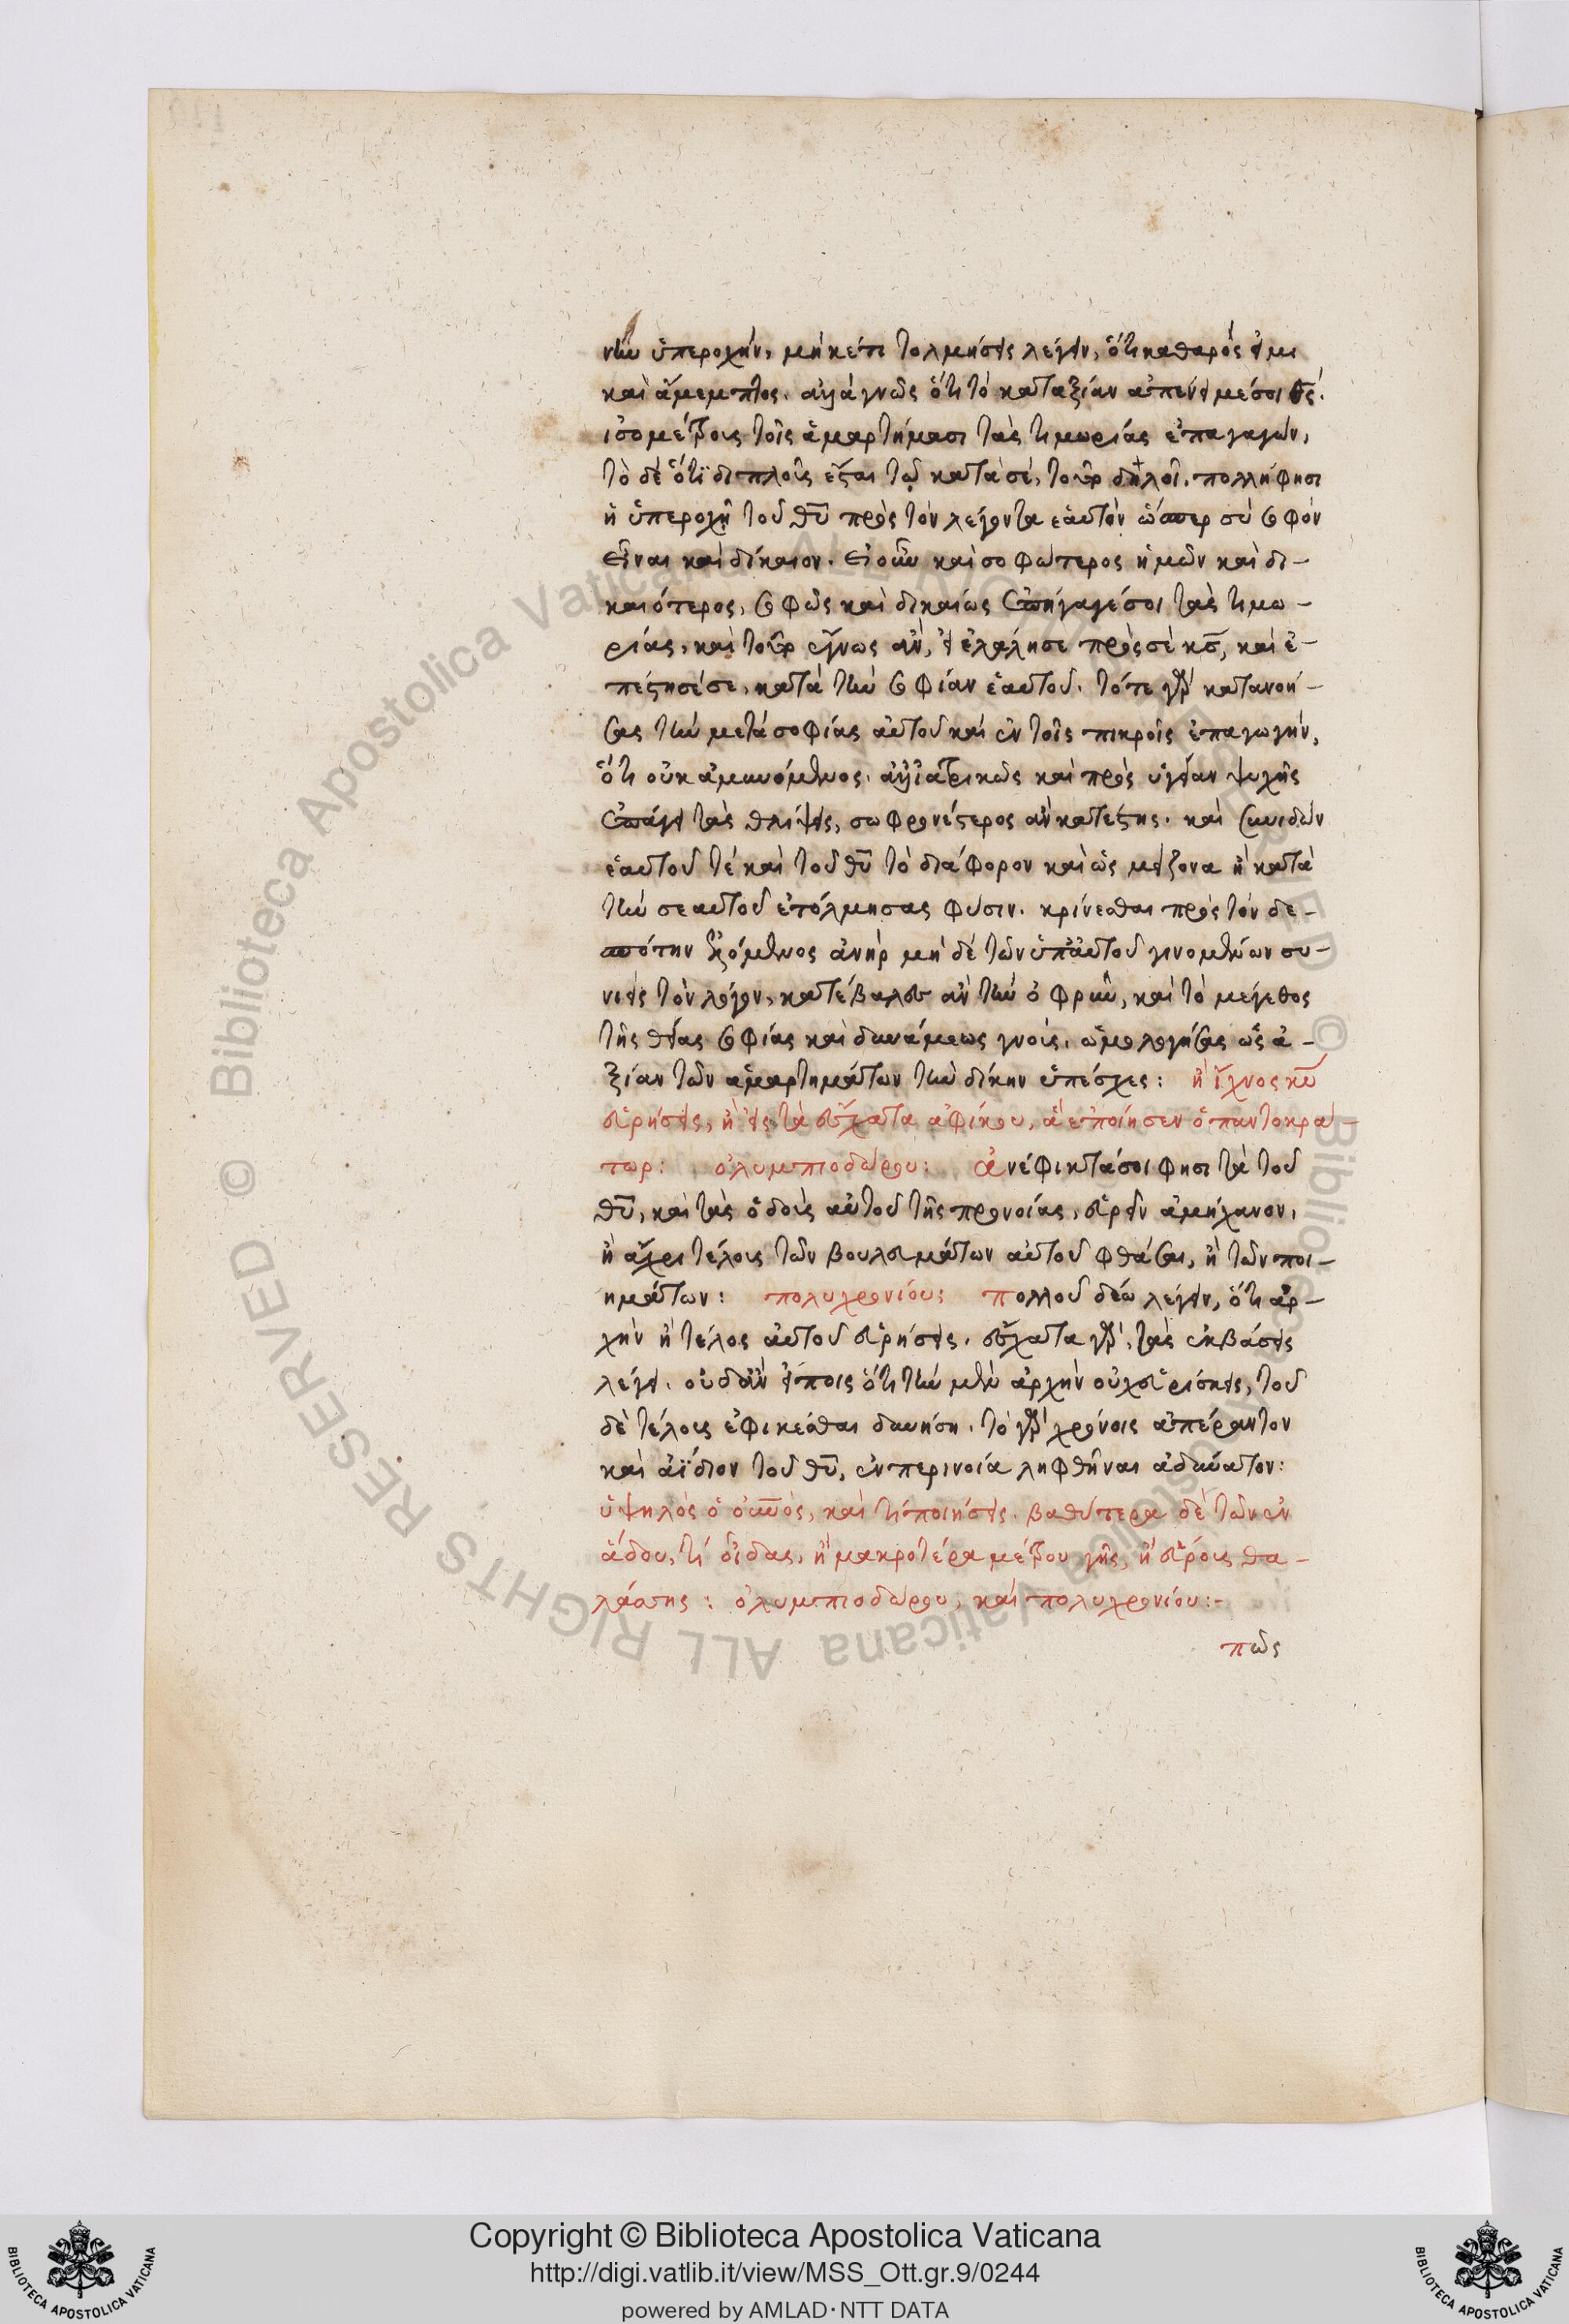 νὴν ὑπεροχήν, μηκέτι τολμήσεις λέγειν, ὅτι καθαρός εἰμι
καὶ ἄμεμπτος. ἀλλὰ γνῶς ὅτι τὸ κατ' ἀξίαν ἀπένειμέ σοι θς.
ἰσομέτρους τοῖς ἁμαρτήμασι τὰς τιμωρίας ἐπαγαγών,
τὸ δὲ ὅτι διπλοῦς ἔσται τῶν κατὰ σέ, τοῦτο δηλοῖ. πολλή φησι
ἡ ὑπεροχὴ τοῦ θυ πρὸς τὸν λέγοντα ἑαυτὸν ὥσπερ σὺ σοφὸν
εἶναι καὶ δίκαιον. εἰ οὖν καὶ σοφώτερος ἡμῶν καὶ δι-
καιότερος, σοφῶς καὶ δικαίως ἐπήγαγέ σοι τὰς τιμω-
ρίας, καὶ τοῦτο ἔγνως ἂν, εἰ ἐλάλησε πρὸς σὲ κς, καὶ ἐ-
πέστησέ σε, κατὰ τὴν σοφίαν ἑαυτοῦ. τότε γὰρ κατανοή-
σας τὴν μετὰ σοφίας αὐτοῦ καὶ ἐν τοῖς πικροῖς ἐπαγωγήν,
ὅτι οὐκ ἀμυνόμενος. ἀλλ' ἰατρικῶς καὶ πρὸς ὑγείαν ψυχῆς
ἐπάγει τὰς θλίψεις, σωφρονέστερος ἂν κατέστης. καὶ συνιδὼν
ἑαυτοῦ τὲ καὶ τοῦ θυ τὸ διάφορον καὶ ὡς μείζονα ἢ κατὰ
τὴν σεαυτοῦ ἐτόλμησας φύσιν. κρίνεσθαι πρὸς τὸν δε-
σπότην ἀνὴρ μηδὲ τῶν ὑπ' αὐτοῦ γινομένων συ-
νιεὶς τὸν λόγον, κατέβαλες ἂν τὴν ὀφρὺν, καὶ τὸ μέγεθος
τῆς θείας σοφίας καὶ δυνάμεως γνοὺς, ὡμολόγησας ὡς ἀ-
ξίαν τῶν ἁμαρτημάτων τὴν δίκην ὑπέσχες: ἢ ἴχνος κυ
εὑρήσεις, ἢ εἰς τὰ ἔσχατα ἀφίκου, ἃ ἐποίησεν ὁ παντοκρά-
τωρ: ὀλυμπιοδώρου: ἀνέφικτά σοι φησὶ τὰ τοῦ
θυ, καὶ τὰς ὁδοὺς αὐτοῦ τῆς προνοίας, εὑρεῖν ἀμήχανον,
ἢ ἄχρι τέλους τῶν βουλευμάτων αὐτοῦ φθάσαι, ἢ τῶν ποι-
ημάτων: πολυχρονίου: πολλοῦ δέω λέγειν, ὅτι ἀρ-
χὴν ἢ τέλος αὐτοῦ εὑρήσεις. ἔσχατα γὰρ, τὰς ἐκβάσεις
λέγει. οὐδ' ἂν εἴποις ὅτι τὴν μὲν ἀρχὴν οὐχ εὑρίσκεις, τοῦ
δὲ τέλους ἐφικέσθαι δυνήσῃ. τὸ γὰρ χρόνοις ἀπέραντον
καὶ ἀΐδιον τοῦ θυ, ἐν περινοία ληφθῆναι ἀδύνατον:
ὑψηλὸς ὁ οὐνὸς, καὶ τί ποιήσεις. βαθύτερα δὲ τῶν ἐν
ἅδου, τί οἶδας, ἢ μακροτέρα μέτρου γῆς, ἢ εὔρους θα-
λάσσης: ὀλυμπιοδώρου, καὶ πολυχρονίου:-
πῶς
Copyright © Biblioteca Apostolica Vaticana
http://digi.vatlib.it/view/MSS_Ott.gr.9/0244
powered by AMLAD·NTT DATA